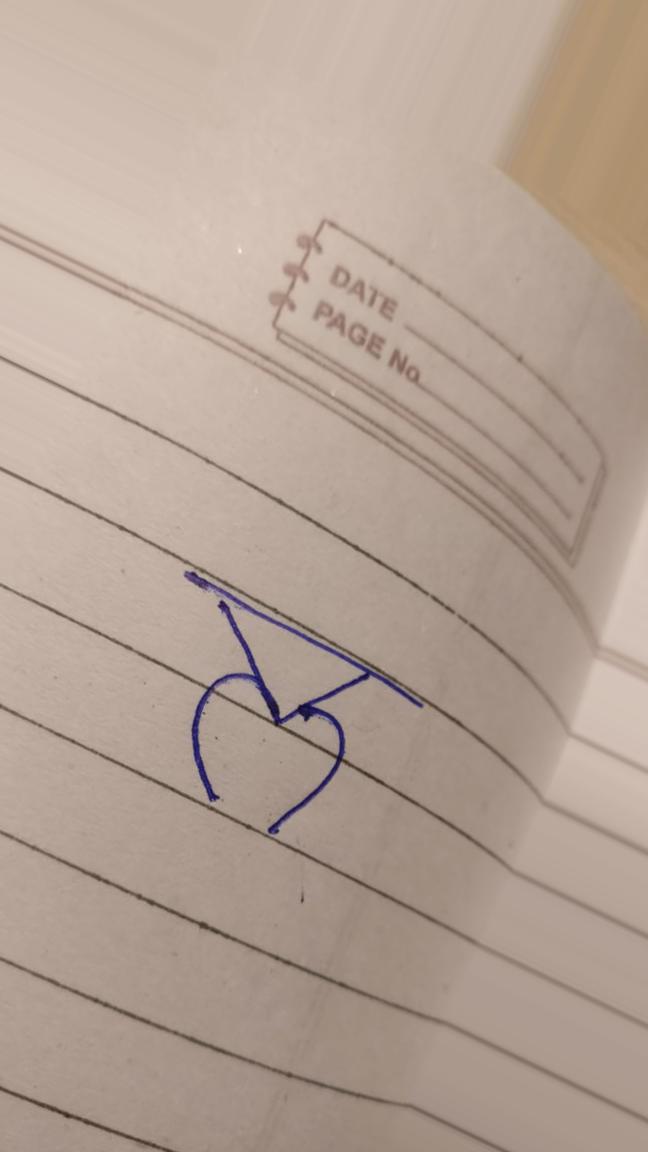 DATE
PAGE No
ਲ